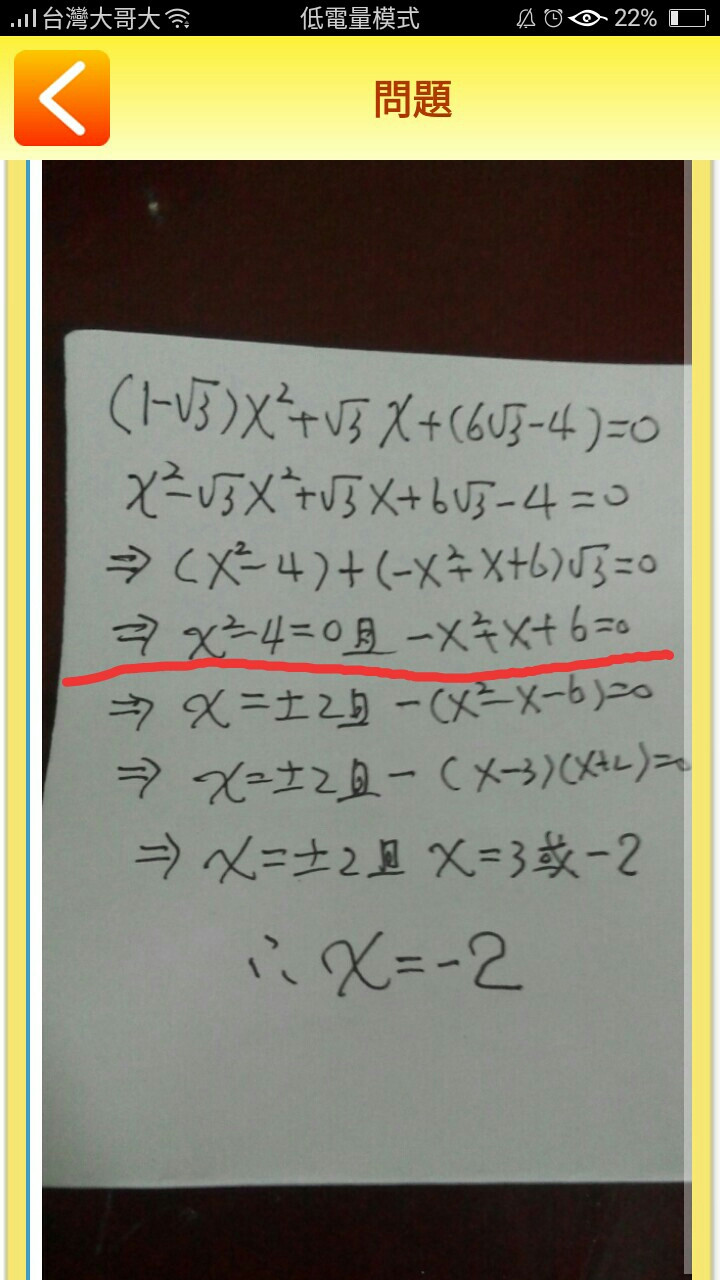 台灣大哥大 低電量模式 22%
問題
(1-√3)x²+√3x+(6√3-4)=0
x²-√3x²+√3x+6√3-4=0
⇒ (x²-4)+(-x²+x+6)√3=0
⇒ x²-4=0且 -x²+x+6=0
⇒ x=±2且 -(x²-x-6)=0
⇒ x=±2且 -(x-3)(x+2)=0
⇒ x=±2且 x=3或-2
∴ x=-2